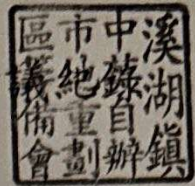 溪湖鎮
中錄自辦
市絶重劃
區議備會